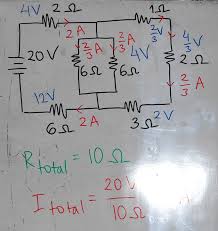 4V 2Ω 1Ω
2A 2/3 V
2/3 A 2/3 A 4/3 V
20V 6Ω 6Ω 2Ω
2/3 A
12V
6Ω 2A 3Ω 2V
R total = 10Ω
I total = 20V / 10Ω A